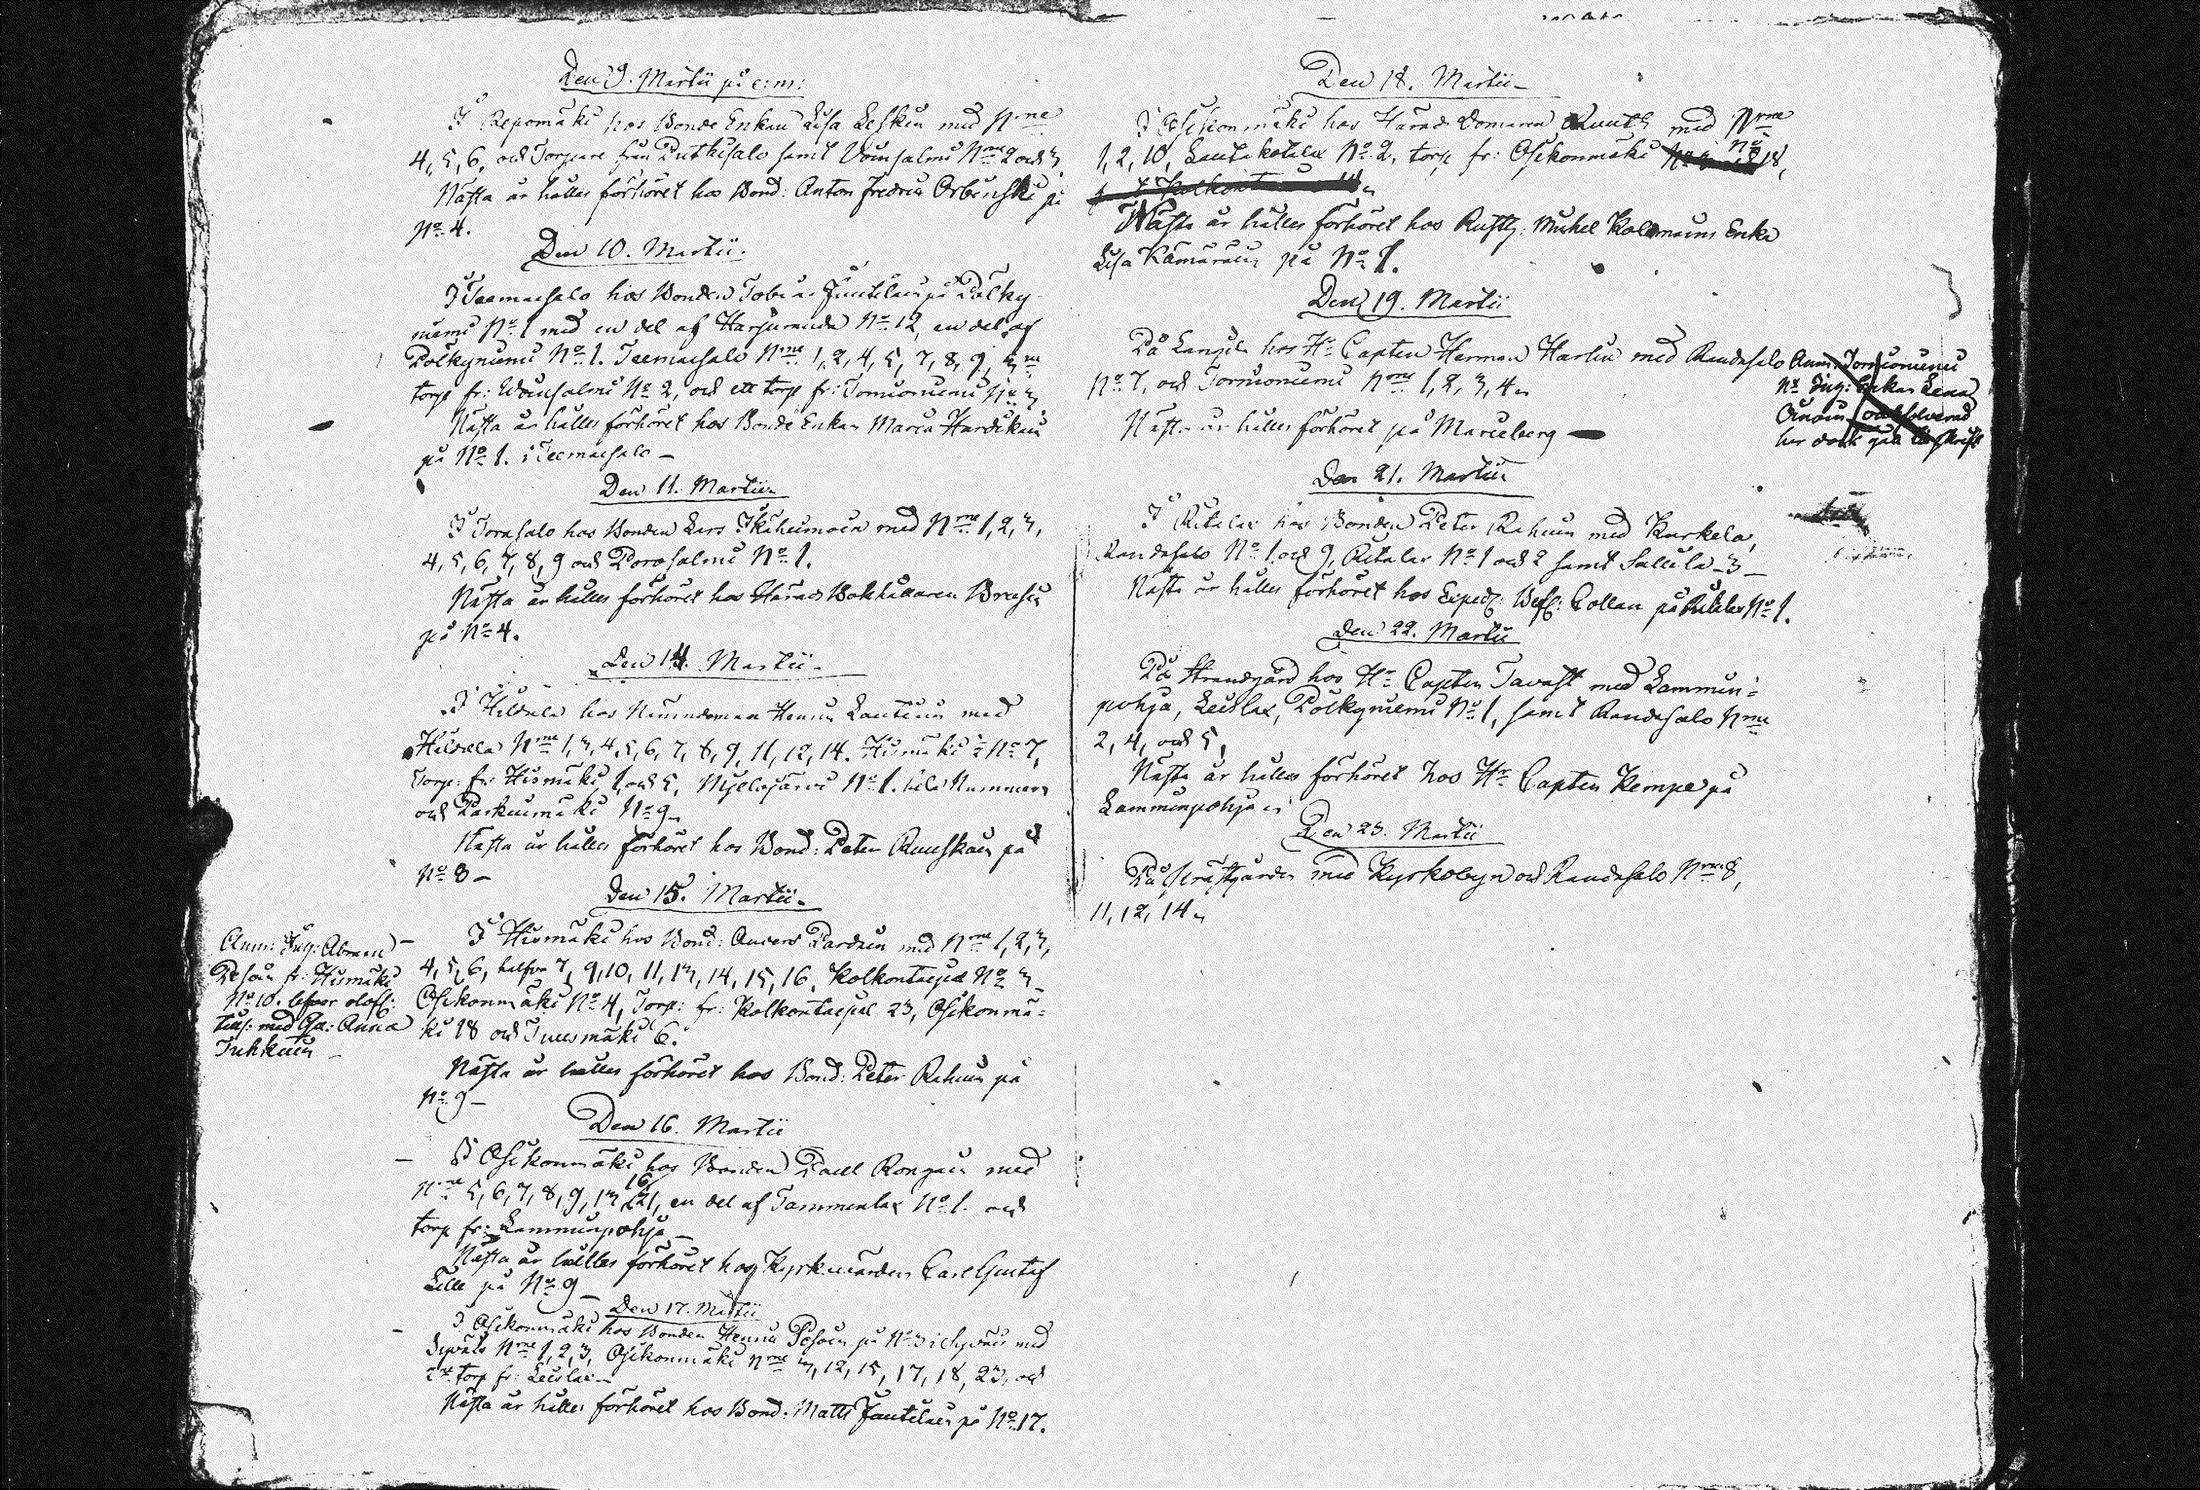 Den 9. Martii på e:m:
I Repomäki hos Bonde Enkan Lisa Leskin med Nrne
4, 5, 6, och Torpare från Putkisalo samt Voinsalmi Nrne 2 och 3
Nästa år hålles förhöret hos Bond: Anton Fredric Orbinski på
No 4.
Den 10. Martii.
I Teemasalo hos Bonden Tobias Jäntikäin på Pölky-
niemi No 1 med en del af Harjuranda No 12, en del af
Pölkyniemi No 1. Teemasalo Nrne 1, 2, 4, 5, 7, 8, 9, 3ne
torp fr: Woinsalmi No 2, och ett torp fr: Tornioniemi No 3,
Nästa år hålles förhöret hos Bonde Enkan Maria Hardikain
på No 1. i Teemasalo -
Den 11. Martii.
I Torasalo hos Bonden Lars Ikäheimoin med Nrne 1, 2, 3,
4, 5, 6, 7, 8, 9 och Porosalmi No 1.
Nästa år hålles förhöret hos Härads Bokhållaren Brofeldt
på No 4.
Den 14. Martii.
I Hildula hos Nämndeman Henric Lautiain med
Hildula Nrne 1, 3, 4, 5, 6, 7, 8, 9, 11, 12, 14. Hirsmäki ½ No 7,
Torp: fr: Hismäki 1, och 5, Myllyjärvi No 1. hela Nummern
och Parkuimäki No 9 -
Nästa år hålles förhöret hos Bond: Peter Ruuskain på
No 8 -
Den 15. Martii.
I Hismäki hos Bond: Anders Pardain med Nrne 1, 2, 3,
4, 5, 6, halfva 7, 9, 10, 11, 13, 14, 15, 16, Kolkontaipal No 3 -
Osikonmäki No 4, Torp: fr: Kolkontaipal 23, Osikonmä-
ki 18 och Tuusmäki 6.
Nästa år hålles förhöret hos Bond: Peter Rahuin på
No 9 -
Anm: Ing: Abram
Pesoin fr: Hismäki
No 10. lefver olofl:
tills: med Ga: Anna
Inhkuin -
Den 16. Martii
I Osikonmäki hos Bonden Paul Rongain med
Nrne 5, 6, 7, 8, 9, 13, 16, 21, en del af Tammenlax No 1. och
torp fr: Lamminpohja -
Nästa år hålles förhöret hos Kyrkvärden Carl Gustaf
Lille på No 9 -
Den 17. Martii
I Osikonmäki hos Bonden Henric Pesoin på No 3 i Syväis med
Syväis Nrne 1, 2, 3, Osikonmäki Nrne 3, 12, 15, 17, 18, 23, och
2ne torp fr: Leislax -
Nästa år hålles förhöret hos Bond: Matts Jäntikäin på No 17.
Den 18. Martii -
I Osikonmäki hos Härads Domaren Knuth med Nrne
1, 2, 10, Lautakotalax No 2, torp fr: Osikonmäki No 18,
Nästa år hålles förhöret hos Rustg: Michel Kolemains Enka
Lisa Kämäräin på No 1.
Den 19. Martii
På Langila hos Hr Capten Herman Harlin med Randasalo
No 7, och Torniomiemi Nrne 1, 2, 3, 4.
Nästa år hålles förhöret på Marieberg -
Anm: Torniomiemi
No Ing: Enkan Lena
har dock
Den 21. Martii
I Ritalax hos Bonden Peter Rahuin med Kurkela,
Randasalo No 1 och 9, Ritalax No 1 och 2 samt Sallila - 3 -
Nästa år hålles förhöret hos Exped: Bef: Collan på Ritalax No 1.
Den 22. Martii
På Strandgård hos Hr Capten Tavast med Lammin-
pohja, Leislax, Pölkyniemi No 1, samt Randasalo Nrne
2, 4, och 5,
Nästa år hålles förhöret hos Hr Capten Kempe på
Lamminpohja
Den 23. Martii
På Prästgården med Kyrkobyn och Randasalo Nrne 8,
11, 12, 14.